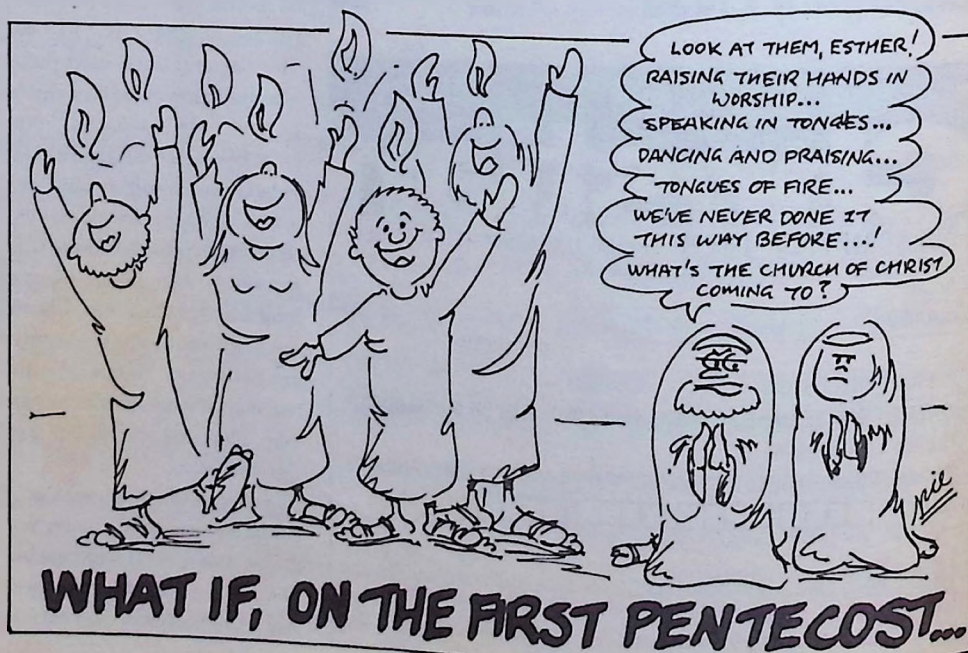 LOOK AT THEM, ESTHER!
RAISING THEIR HANDS IN
WORSHIP...
SPEAKING IN TONGUES...
DANCING AND PRAISING...
TONGUES OF FIRE...
WE'VE NEVER DONE IT
THIS WAY BEFORE...!
WHAT'S THE CHURCH OF CHRIST
COMING TO?
WHAT IF, ON THE FIRST PENTECOST...